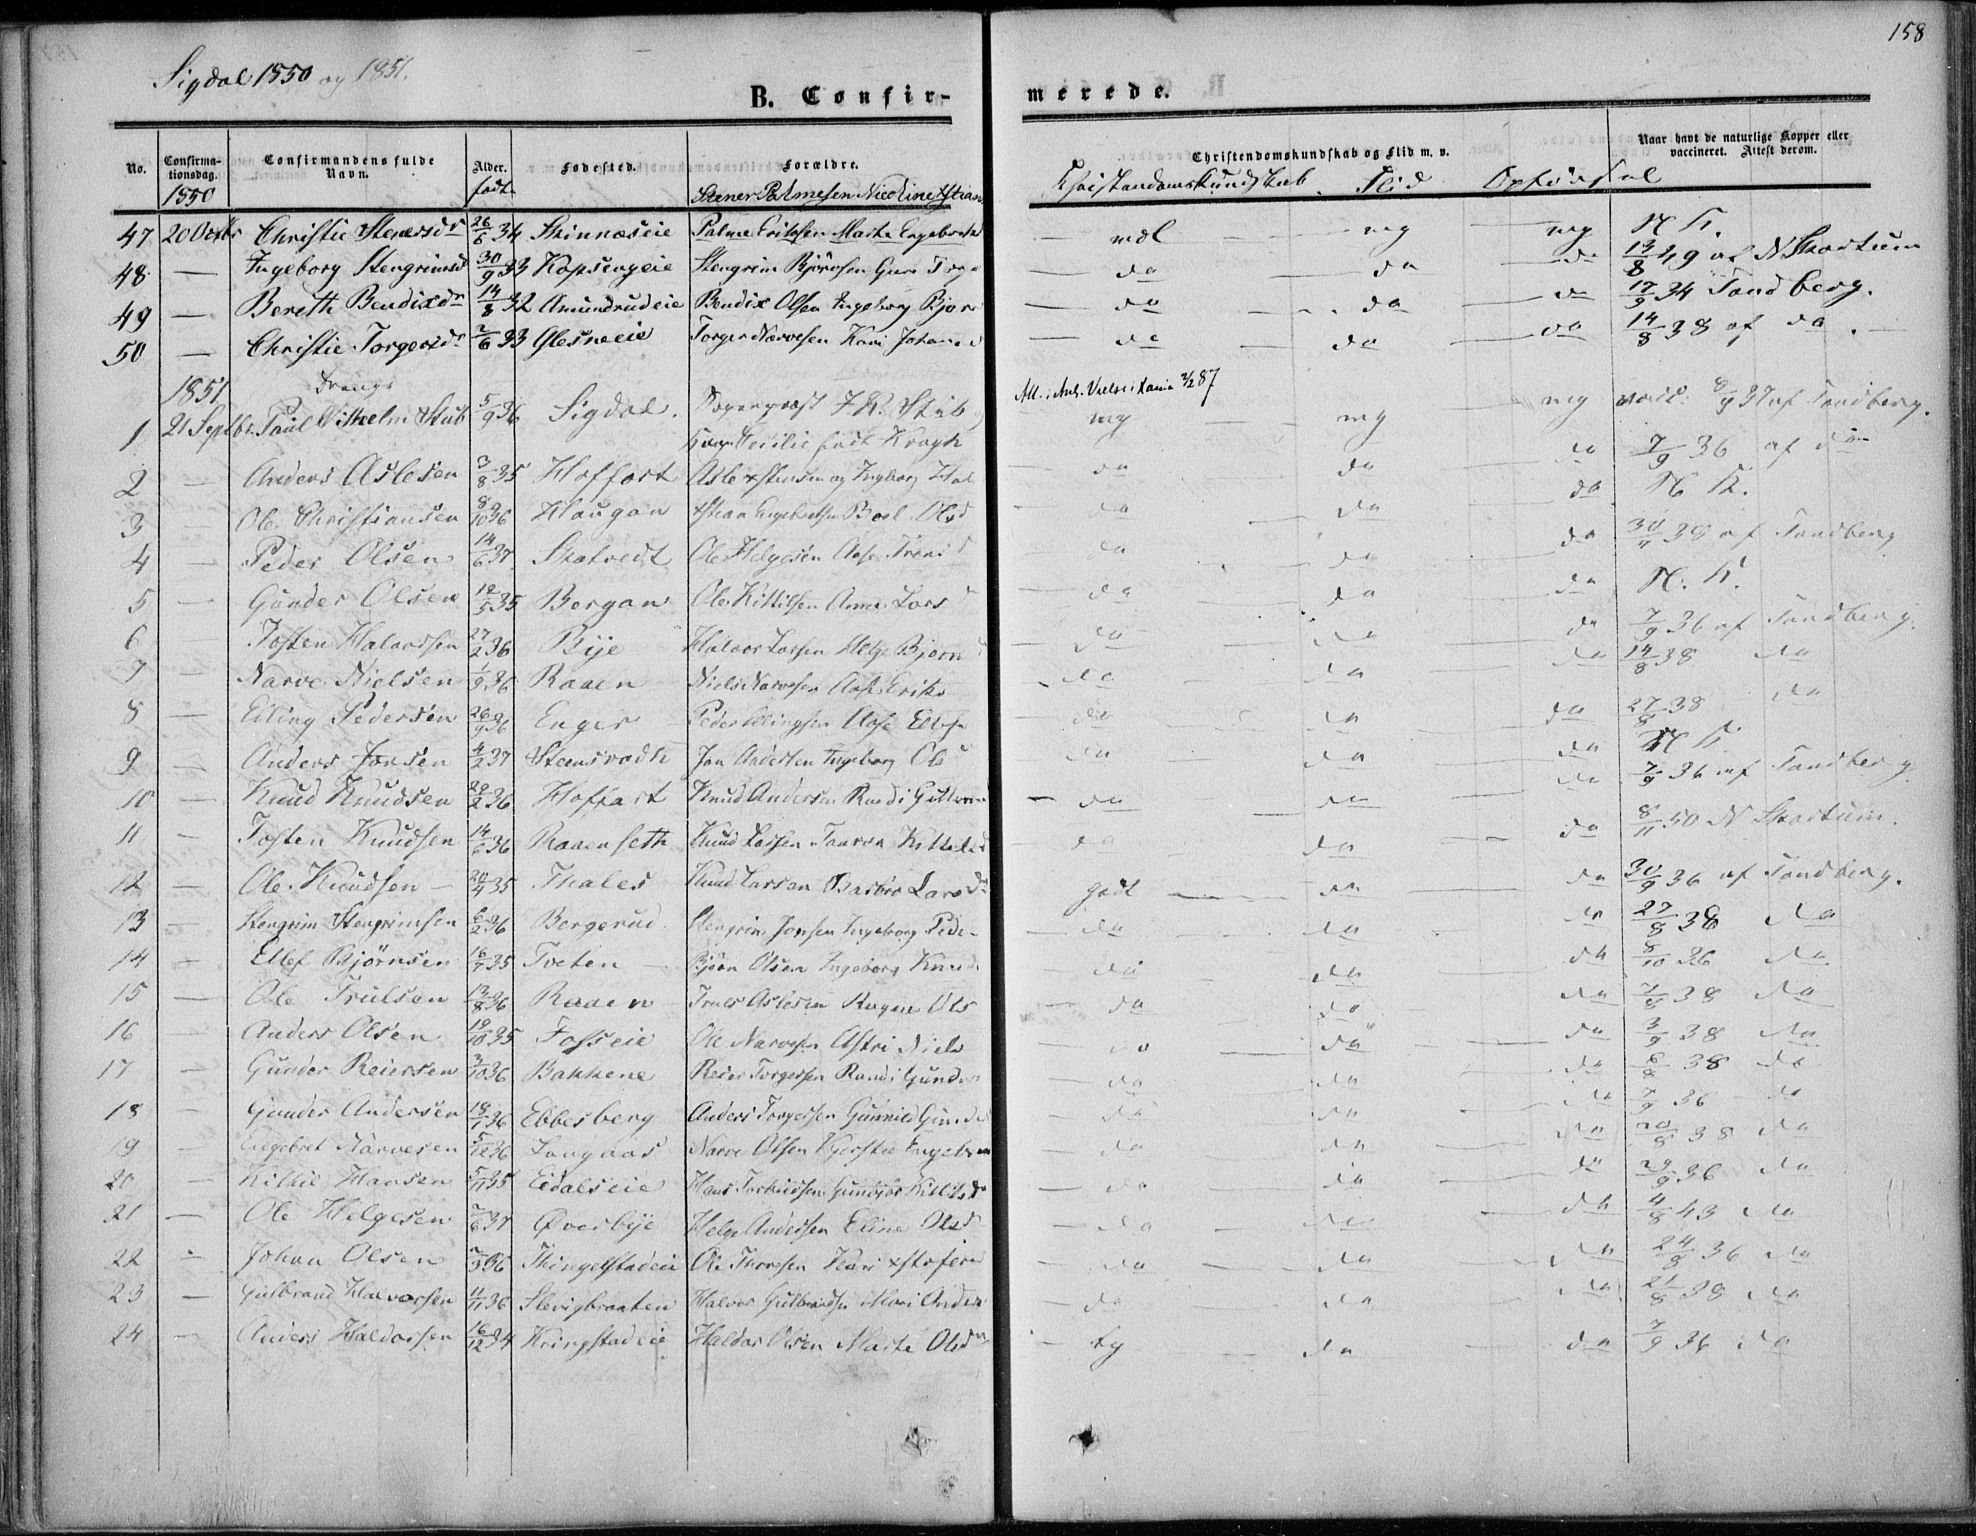 158
Sigdal 1850 og 1851.
B. Confirmerede.
No. Confirmationsdag. Confirmandens fulde Navn. Alder. Fødested. Forældre. Christendomskundskab og Flid m. v. Naar havt de naturlige Kopper eller vaccineret. Attest derom.
1850 født Christendomskundskab Flid Opførsel
47 20 Octbr Christie Stenersdr 26/6 34 Skinnæseie Palme Eriksen Marthe mdl mg mg N. K.
48 — Ingeborg Stengrimsd 30/9 33 Kopsengeie Stengrim Bjørnsen do do do 13/8 49 af N Skartum
49 — Bereth Bendixdr 14/8 32 Amundrudeie Bendix Olsen Ingeborg do do do 17/9 34 Tandberg.
50 — Christie Torgersdr 2/6 33 Glesneeie Torger Narvesen Kari do do do 14/8 38 af do.
1851 Drenge
1 21 Septbr Paul Vilhelm Stub 5/9 36 Sigdal. Sogneprest Stub mg mg mg vacc. 37 af Tandberg.
Cecilie født Kragh
2 — Anders Aslesen 3/8 35 Hoffart Asle Stensen og Ingeborg do do do 7/9 36 af do
3 — Ole Christiansen 8/10 36 Haugan Engebretsen Olsd do do do N. K.
4 — Peder Olsen 14/6 37 Skatvedt Ole Helgesen Aase do do do 38 af Tandberg
5 — Gunder Olsen 12/5 35 Bergan Ole Kittilsen Anne Lars do do do N. K.
6 — Tosten Halvorsen 27/2 36 Bije Halvor Larsen Helge Bjørn do do do 7/9 36 af Tandberg.
7 — Narve Nielsen 1/9 36 Raaen Niels Narvesen Aase Eriks do do do 14/8 38 do
8 — Elling Pedersen 26/9 36 Enger Peder Ellingsen Aase do do do 27/8 38 do
9 — Anders Jonsen 4/2 37 Steensrodh Jon Andersen Ingeborg Ols do do do N K.
10 — Knud Knudsen 29/2 36 Hoffart Knud Andersen Randi do do do 7/9 36 af Tandberg
11 — Tosten Knudsen 14/6 36 Raaenseth Knud Larsen Kittelsd do do do 8/11 50 N Skartum.
12 — Ole Knudsen 20/4 35 Thales Knud Larsen Barbro Larsdr godt do do 30/9 36 af Tandberg.
13 — Stengrim Stengrimsen 6/2 36 Bergerud Stengrim Jonsen Ingeborg Peder do do do 27/8 38 do
14 — Ellef Bjørnsen 16/7 35 Tveten Bjørn Olsen Ingeborg Knud do do do 8/10 36 do
15 — Ole Trulsen 13/8 36 Raaen Truls Aslesen Ragne Ols do do do 7/8 38 do
16 — Anders Olsen 19/10 35 Fosseie Ole Narvesen Astri Niels do do do 3/9 38 do
17 — Gunder Reiersen 3/10 36 Bakkene Reier Torgersen Randi Gunder do do do 38 do
18 — Gunder Andersen 36 Ebbesberg Anders Torgersen Gunnild Gunde do do do 7/9 36 do
19 — Engebret Narvesen 5/12 36 Langaas Narve Olsen Kjerstie Engebre do do do 20/8 38 do
20 — Kittil Hansen 5/11 35 Eidalseie Hans Torkildsen Gundjør Kittilsdr do do do 29/9 36 do
21 — Ole Helgesen 2/6 37 Øverbije Helge Andersen Eline Olsd do do do 4/8 43 do
22 — Johan Olsen 36 Thingelstadeie Ole Thoresen Kari do do do 24/8 36 do
23 — Gulbrand Halvorsen 11/11 36 Slevigbraaten Halvor Gulbrandsen Mari Anders do do do 21/8 38 do
24 — Anders Haldorsen 16/12 34 Kringstadeie Haldor Olsen Marte Olsdr tg do do 7/9 36 do